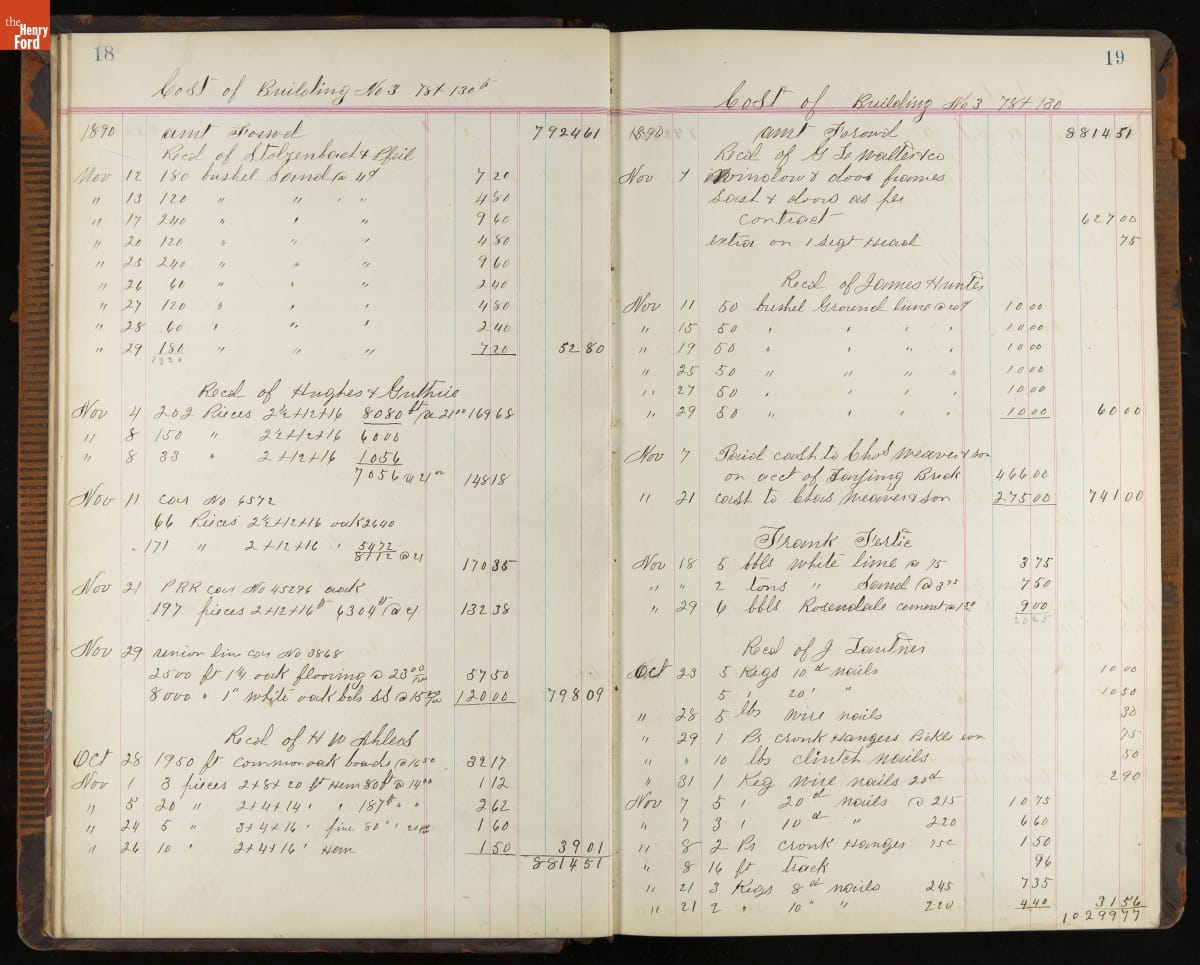 the
Henry
Ford
18
Cost of Building No 3 78+130ft
1890 amt Forwd 792461
Recd of Stolzenbach & Pfeil
Nov 12 180 bushel Sand @ 4¢ 720
" 13 120 " " " " 480
" 17 240 " " " 960
" 20 120 " " " 480
" 25 240 " " " 960
" 26 60 " " " 240
" 27 120 " " " 480
" 28 60 " " " 240
" 29 180 " " " 720 5280
1320
Recd of Hughes & Guthrie
Nov 4 202 Pieces 2½+12+16 8080ft @ 21 00 16968
" 8 150 " 2½+12+16 6000
" 8 33 " 2+12+16 1056
7056 @ 21 00 14818
Nov 11 car No 6572
66 Pieces 2½+12+16 oak 2640
171 " 2+12+16 " 5472
8112 @ 21 17035
Nov 21 PRR car No 45296 oak
197 pieces 2+12+16ft 6304ft @ 21 13238
Nov 29 union lin car No 3868
2500 ft 1¼ oak flooring @ 23 00 5750
8000 " 1" white oak bds @ 15 12000 79809
Recd of H W Ahlers
Oct 28 1950 ft common oak boards @ 16 50 3217
Nov 1 3 pieces 2+8+20 ft Hem 80ft @ 14 00 112
" 5 20 " 2+4+14 " " 187ft " " 262
" 24 5 " 3+4+16 " pine 80 " " 20 00 160
" 26 10 " 2+4+16 " Hem 150 3901
881451
19
Cost of Building No 3 78+130
1890 amt Forowd 881451
Recd of G Walter & co
Nov 7 Window & door frames
Sash & doors as per
contract 62700
extra on 1 Segt Head 75
Recd of James Hunter
Nov 11 50 bushel Ground lime @ 20¢ 1000
" 15 50 " " " " 1000
" 19 50 " " " " 1000
" 25 50 " " " " 1000
" 27 50 " " " 1000
" 29 50 " " " " 1000 6000
Nov 7 Paid cash to Chas Weaver & son
on acct of Brick 46600
" 21 cash to Chas Weaver & son 27500 74100
Frank
Nov 18 5 bbls white lime @ 75 375
" " 2 tons " Sand @ 3 75 750
" 29 6 bbls Rosendale cement @ 1 50 900
2025
Recd of J Lautner
Oct 23 5 Kegs 10d nails 1000
5 " 20 " " 1050
" 28 5 lbs wire nails 30
" 29 1 Pr cronk Hangers 75
" " 10 lbs clintch nails 50
" 31 1 Keg wire nails 20d 290
Nov 7 5 " 20d nails @ 215 1075
" 7 3 " 10d " 220 660
" 8 2 Prs cronk Hanges 75c 150
" 8 16 ft track 96
" 21 3 Kegs 8d nails 245 735
" 21 2 " 10 " " 220 440 3156
1029977